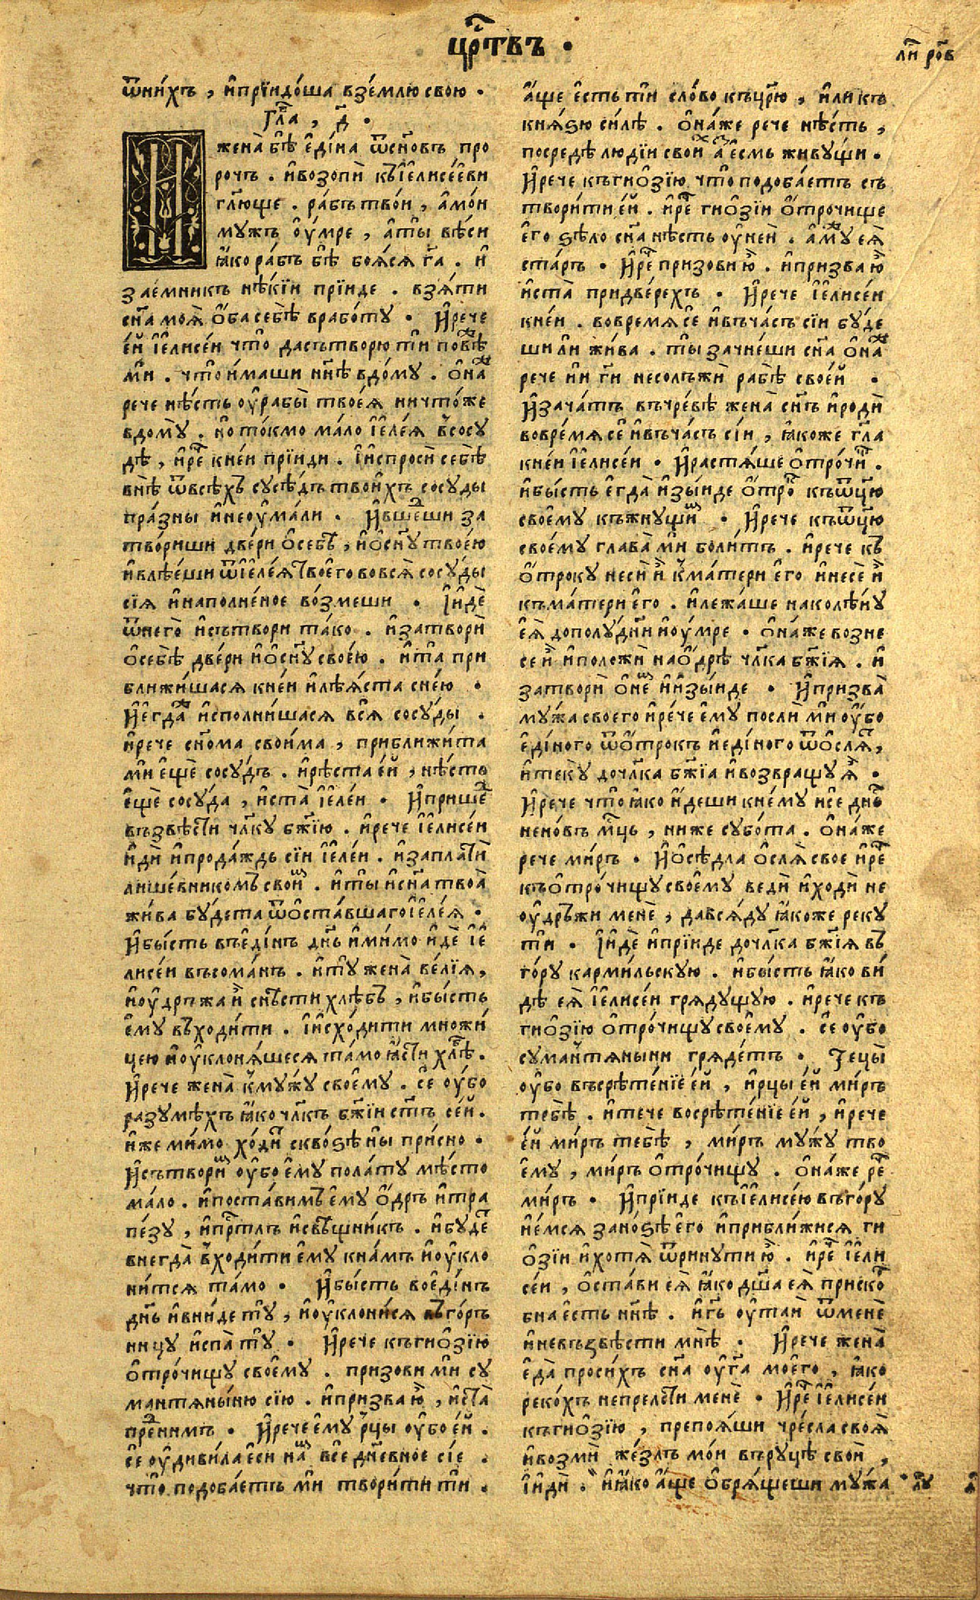 црⷭ҇твъ ·
ли́ рⷪ҇в
ѿни́хъ , и҆прїидо́ша вземлю свою ·
гл҃а , д҃ ·
И жена̀ бѣ̀ е҆ди́на ѿсн҃о́въ про
рочь . и҆возопѝ къ і҆елисе́еви
гл҃юще . ра́бъ твои , а҆мо́и
му́жъ оу҆́мре , а҆ты̀ вѣ́си
ꙗ҆́ко ра́бъ бѣ̀ боя́ся гⷭ҇а . и҆
заемникъ нѣ́кїи прїиде . взя́ти
сн҃а моя̀ ѻ҆́ба себѣ̀ врабо́ту · И҆рече
е́й і҆елисе́и что̀ да съ творю тѝ повѣⷤ
мѝ . что̀ имаши нн҃ѣ вдо́му . ѻ҆наⷤ
рече нѣ́сть оу҆рабы̀ твоея̀ ничто́же
вдомꙋ̀ . но то́кмо ма́ло і҆еле́я всосу
дѣ̀ , и҆реⷱ҇ кне́и прїиди . і҆испросѝ себѣ̀
внѣ̀ ѿвсѣ́хъ сусѣ́дъ твои́хъ сосу́ды
пра́зны и҆неоу҆ма́ли . И҆вше́ши за
тво́риши две́ри ѻ҆себѣ̀ , и҆ѻ҆сн҃у твое́ю
и҆влѣ́еши ѿі҆еле́я твоего̀ вовся̀ сосу́ды
сїя̀ и҆наполне́ное во́змеши · І҆идѐ
ѿнего̀ и҆сътвори та́ко . и҆затворѝ
ѻ҆себѣ̀ две́ри и҆ѻ҆сн҃у свое́ю . и҆та̀ при
бли́жишася кне́и и҆лѣ́яста сне́ю ·
И҆е҆гдаⷤ и҆спо́лнишася вся̀ сосу́ды .
и҆рече сн҃ома свои́ма , прибли́жита
мѝ е҆щѐ сосу́дъ . и҆рѣ́ста е́й , нѣ́сть
е҆щѐ сосу́да , и҆ста̀ і҆еле́и · И҆прише́
възвѣстѝ чл҃ку бж҃їю . и҆рече і҆елисе́и
и҆дѝ и҆прода́ждь сїи і҆еле́и . и҆заплатѝ
лише́вникомъ своиⷨ҇ . и҆ты̀ и҆сн҃а твоа̀
жи́ва бу́дета ѿѻ҆ста́вшаго і҆еле́я ·
И҆бы́сть въе҆ди́нъ дн҃ь и҆мимо и҆́де і҆е
лисе́и въсома́нъ . и҆тꙋ̀ жена̀ ве́лїя ,
и҆оу҆держа и҆̀ снѣ́сти хлѣ́бъ , и҆бы́сть
е҆му̀ въходи́ти . і҆исхо́дити мно́жи
цею и҆оу҆клоня́шеся та́мо ꙗ҆́сти хлѣ́ⷠ .
И҆рече жена̀ к му́жу своему . сѐ оу҆бо
разумѣ́хъ ꙗ҆́ко чл҃къ бж҃їи ст҃ъ се́й .
и҆́же мимо хо́диⷮ скво́зѣ ны̀ при́сно ·
И҆сътвориⷨ оу҆́бо е҆му̀ пола́ту мѣ́сто
мало . и҆поста́вимъ е҆му̀ ѻ҆́дръ и҆тра
пе́зу , и҆прⷭ҇то́лъ и҆свѣ́щникъ . и҆бу́деⷮ
внегда̀ входи́ти е҆му̀ кна́мъ и҆оу҆кло
ни́тся та́мо · И҆бы́сть вое҆ди́нъ
дн҃ь и҆вни́де тꙋ̀ , и҆оу҆клони́ся въго́рь
ницу и҆спа̀ тꙋ̀ · И҆рече къгиѻ҆зїю
ѻ҆тро́чищу своему . призови мѝ су
мантяныню сїю . и҆призва ю҆̀ , и҆ста̀
преⷣни́мъ · И҆рече е҆му̀ рцы̀ оу҆бо е́й .
сѐ оу҆дивила еси наⷭ҇ всѐ дне́вное сїе .
что̀ подоба́етъ мѝ твори́ти тѝ .
а҆́ще е҆́сть тѝ сло́во къцр҃ю , и҆ли къ
кня́зю си́лѣ . ѻ҆на́же рече нѣ́сть ,
посредѣ̀ лю́дїи свои́хъ а҆́зъ е҆́смь живу́щи .
И҆рече къгиѻ҆зїю , что̀ подоба́етъ съ
твори́ти е́й . и҆реⷱ҇ гиѻ҆зїи ѻ҆тро́чище
е҆го̀ зѣло̀ сн҃а нѣ́сть оу҆не́й . а҆му́ⷤ ея̀
ста́ръ · И҆реⷱ҇ призови ю҆̀ . и҆призва ю҆̀
и҆ста̀ придве́рехъ · И҆рече і҆елисе́и
кне́и . вовремя сѐ и҆въча́съ сїи бу́де
ши лѝ жива . ты̀ зачне́ши сн҃а ѻ҆на́ⷤ
рече нѝ гⷭ҇и несолъжѝ рабѣ̀ свое́й ·
И҆зача́тъ въчре́вѣ жена̀ сн҃ъ и҆родѝ
вовре́мя сѐ и҆въча́съ сїи , ꙗ҆́коже гл҃а
кне́и і҆елисе́и · И҆растя́ше ѻ҆тро́чиⷳ .
и҆бы́сть е҆гда̀ и҆зы́иде ѻ҆тро́ⷱ къѿц҃ю
своему къжну́щиⷨ · И҆рече къѿц҃ю
своему глава̀ мѝ боли́тъ . и҆рече къ
ѻ҆́троку несѝ и҆̀ кма́тери е҆го̀ и҆несѐ и҆̀
къма́тери е҆го̀ . и҆лежа́ше наколѣ́ну
ея̀ дополу́дни и҆оу҆́мре · ѻ҆на́же возне
се и҆̀ и҆положѝ наѻ҆дрѣ̀ чл҃ка бж҃їя . и҆
затворѝ ѻ҆не́мъ и҆и҆зы́иде · И҆призва̀
му́жа своего и҆ре́че е҆му̀ послѝ мѝ оу҆́бо
е҆ди́ного ѿѻ҆́трокъ и҆е҆ди́ного ѿѻ҆сля́тъ ,
и҆теку̀ дочл҃ка бж҃їа и҆возвращу́ся̀ .
И҆рече что̀ ꙗ҆́ко и҆́деши кнему и҆сѐ дн҃ь
нено́въ мцⷭ҇ь , ниже субо́та . ѻ҆на́же
рече ми́ръ · И҆ѻ҆сѣ́дла ѻ҆сля̀ свое и҆реⷱ҇
къѻ҆тро́чищу своему ведѝ и҆ходѝ не
оу҆дръ́жи менѐ , да всяду ꙗ҆́коже реку
тѝ · І҆идѐ и҆прїиде дочл҃ка бж҃їя въ
го́ру карми́льскую . и҆бы́сть ꙗ҆́ко ви́
дѣ ея̀ і҆елисе́и гряду́щую . и҆рече къ
гиѻ҆зїю ѻ҆тро́чищу своему . сѐ оу҆бо
сумантя́ныни гряде́тъ · Тецы̀
оу҆бо въсрѣ́тенїе е́й , и҆рцы е́й ми́ръ
тебѣ̀ . и҆тече восрѣ́тенїе е́й , и҆рече
е́й ми́ръ тебѣ̀ , ми́ръ му́жу тво
ему , ми́ръ ѻ҆тро́чищу . ѻ҆на́же реⷱ҇
ми́ръ · И҆прїиде къі҆елисе́ю въго́ру
и҆е҆́мся зано́зѣ е҆го̀ и҆прибли́жися ги
ѻ҆зїи и҆хотя̀ ѿри́нути ю҆̀ . и҆реⷱ҇ і҆ели
се́и , ѻ҆стави ея̀ ꙗ҆́ко дш҃а ея̀ приско́
бна е҆́сть нн҃ѣ . и҆гⷭ҇ь оу҆таѝ ѿменѐ
и҆невъзвѣсти мнѣ̀ · И҆рече жена̀
е҆да̀ проси́хъ сн҃а оу҆гⷭ҇а моего , ꙗ҆́ко
реко́хъ непрельсти менѐ · И҆реⷱ҇ і҆елисе́и
къгиѻ҆зїю , препоя́ши чре́сла своя̀
и҆возмѝ же́злъ мо́и въруцѣ̀ свои ,
і҆идѝ . и҆ꙗ҆́ко а҆́ще ѻ҆бря́щеши му́жа